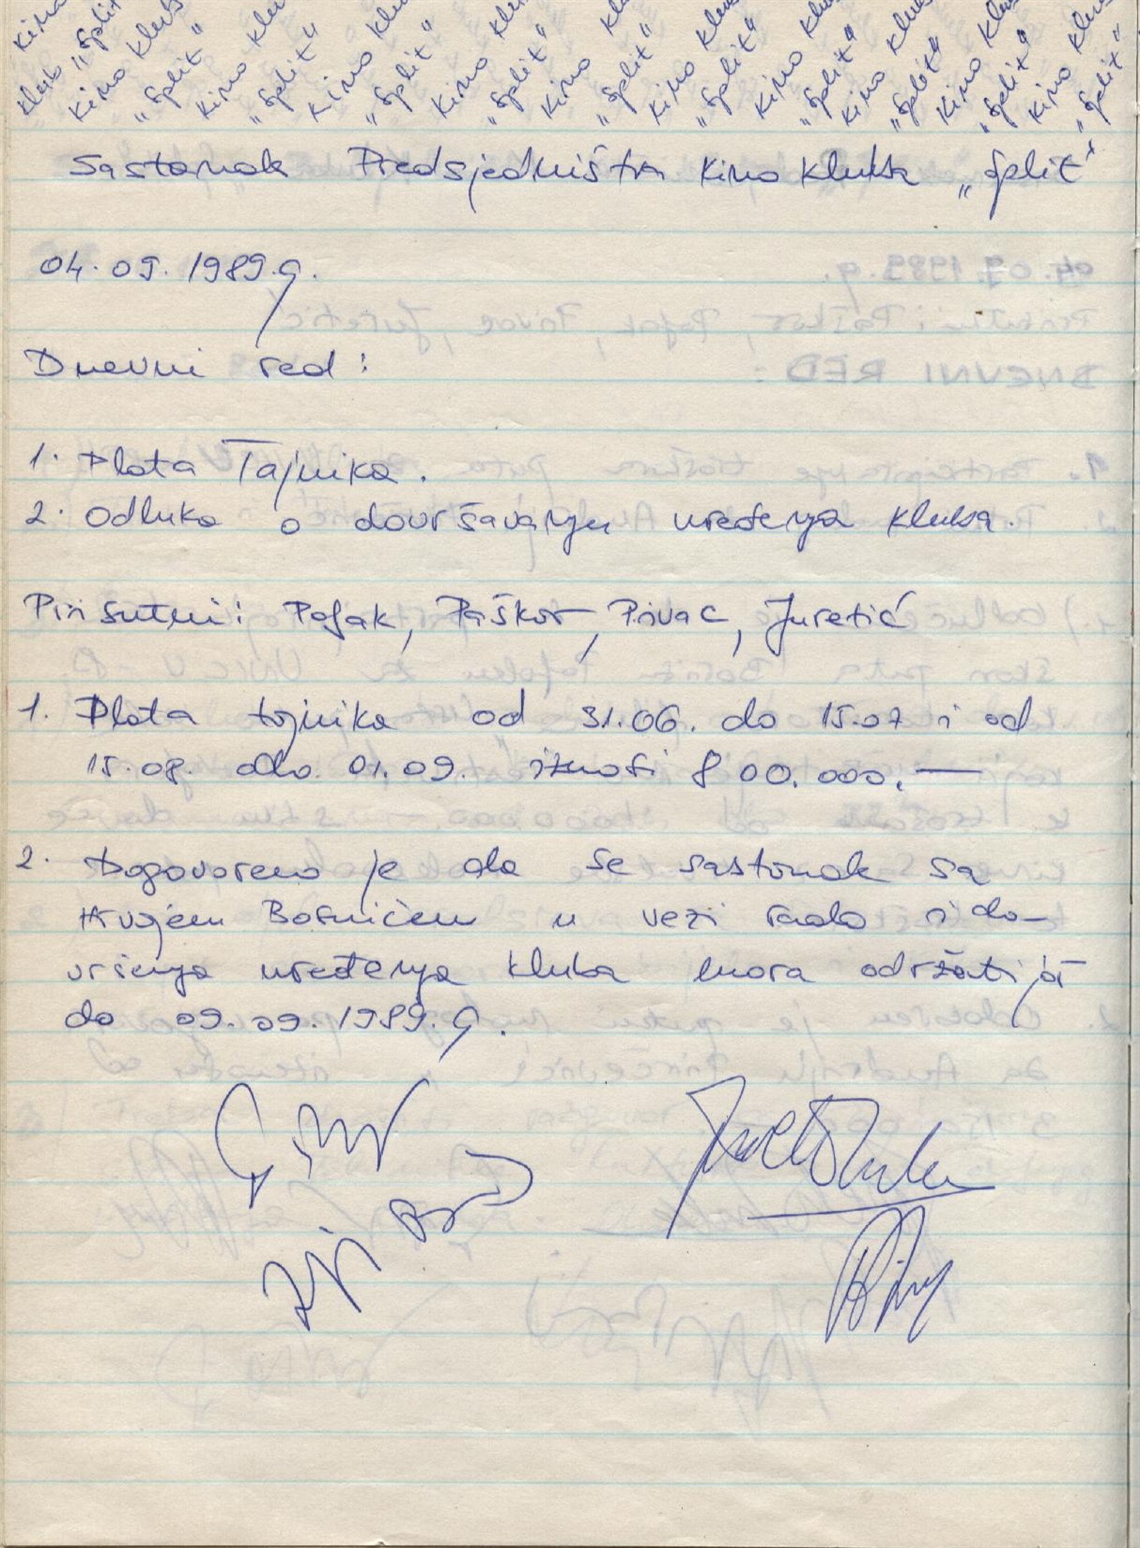 Kino klub „Split“ Kino klub „Split“ Kino klub „Split“ Kino klub „Split“ Kino klub „Split“ Kino klub „Split“ Kino klub „Split“ Kino klub „Split“ Kino klub „Split“ Kino klub „Split“
Sastanak Predsjedništva Kino kluba „Split“
04.09.1989.g.
Dnevni red:
1. Plata Tajnika.
2. Odluka o dovršavanju uređenja kluba.
Prisutni: Pofak, Paškov, Pivac, Juretić
1. Plata tajnika od 31.06. do 15.07 i od
15.08. do 01.09. iznosi 800.000.—
2. Dogovoreno je da se sastanak sa
Hrvojem Bosnićem u vezi rada i do-
vršenja uređenja kluba mora održati još
do 09.09.1989.g.